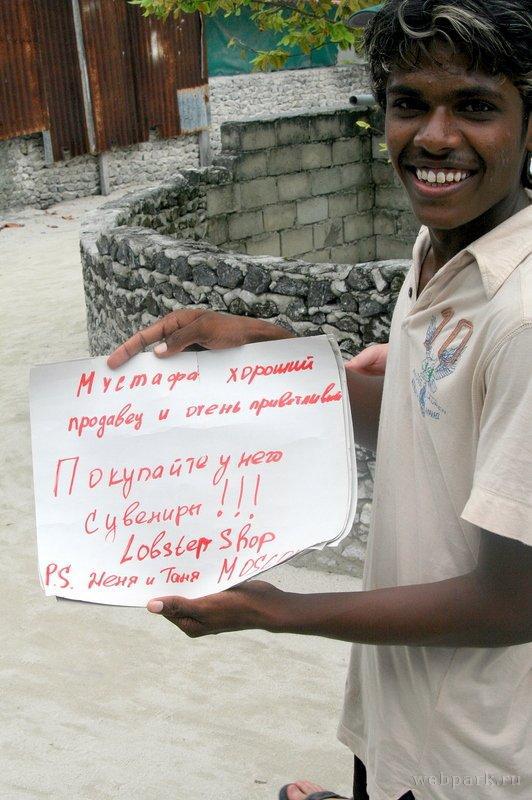 Мустафа хороший
продавец и очень приветливый
Покупайте у него
сувениры !!!
Lobster Shop
P.S. Женя и Таня
10
webpark.ru